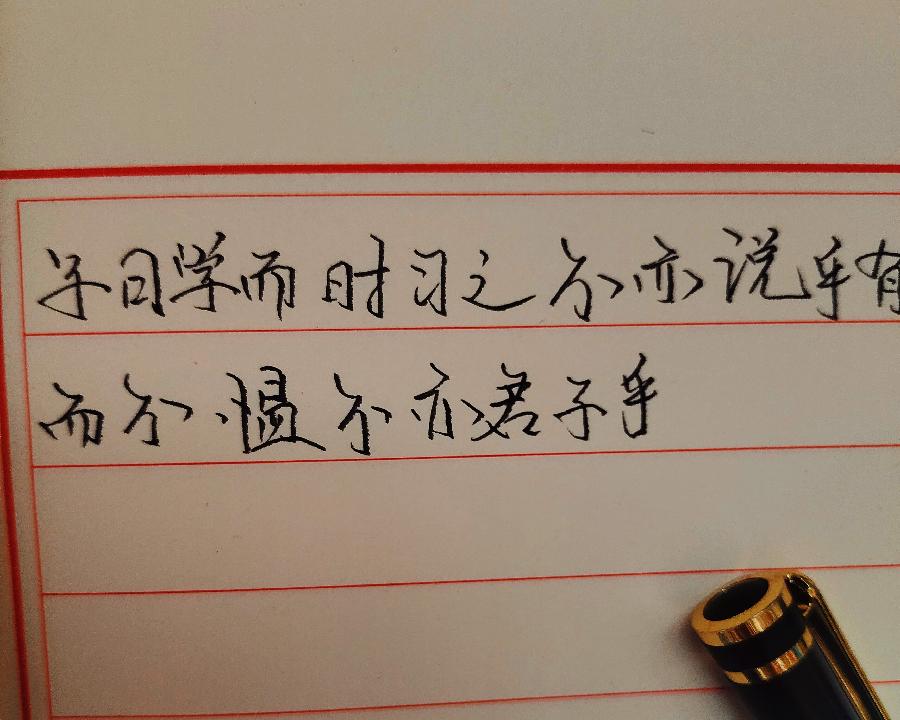 子曰学而时习之不亦说乎有
而不愠不亦君子乎